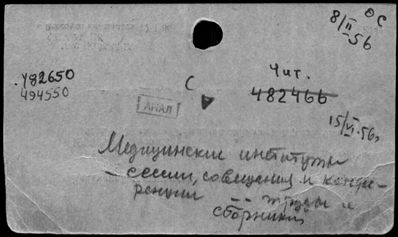 ОС
8/II-56
У82650
494550
С
Чит.
482466
АНАЛ
15/VI-56г
Медицинские институты
– сессии, совещания и конфе-
ренции -- труды и
сборники